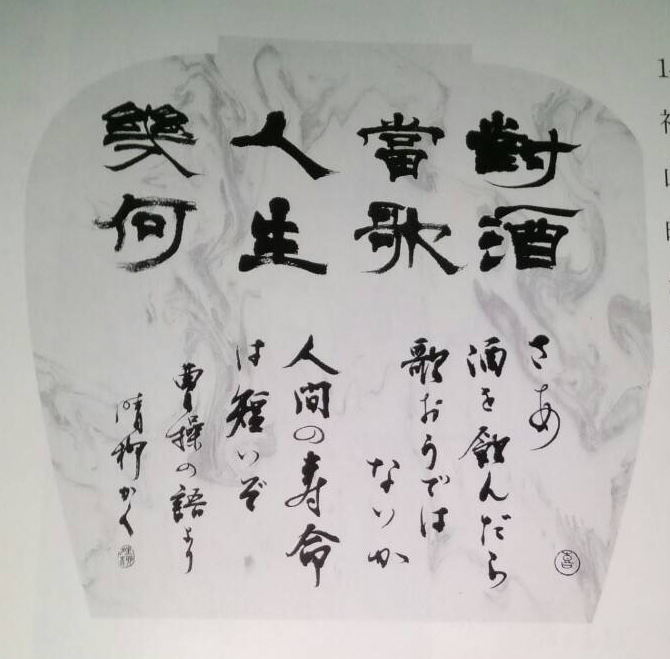 對酒
當歌
人生
幾何
さあ
酒を飲んだら
歌おうでは
ないか
人間の寿命
は短いぞ
曹操の語より
晴柳かく